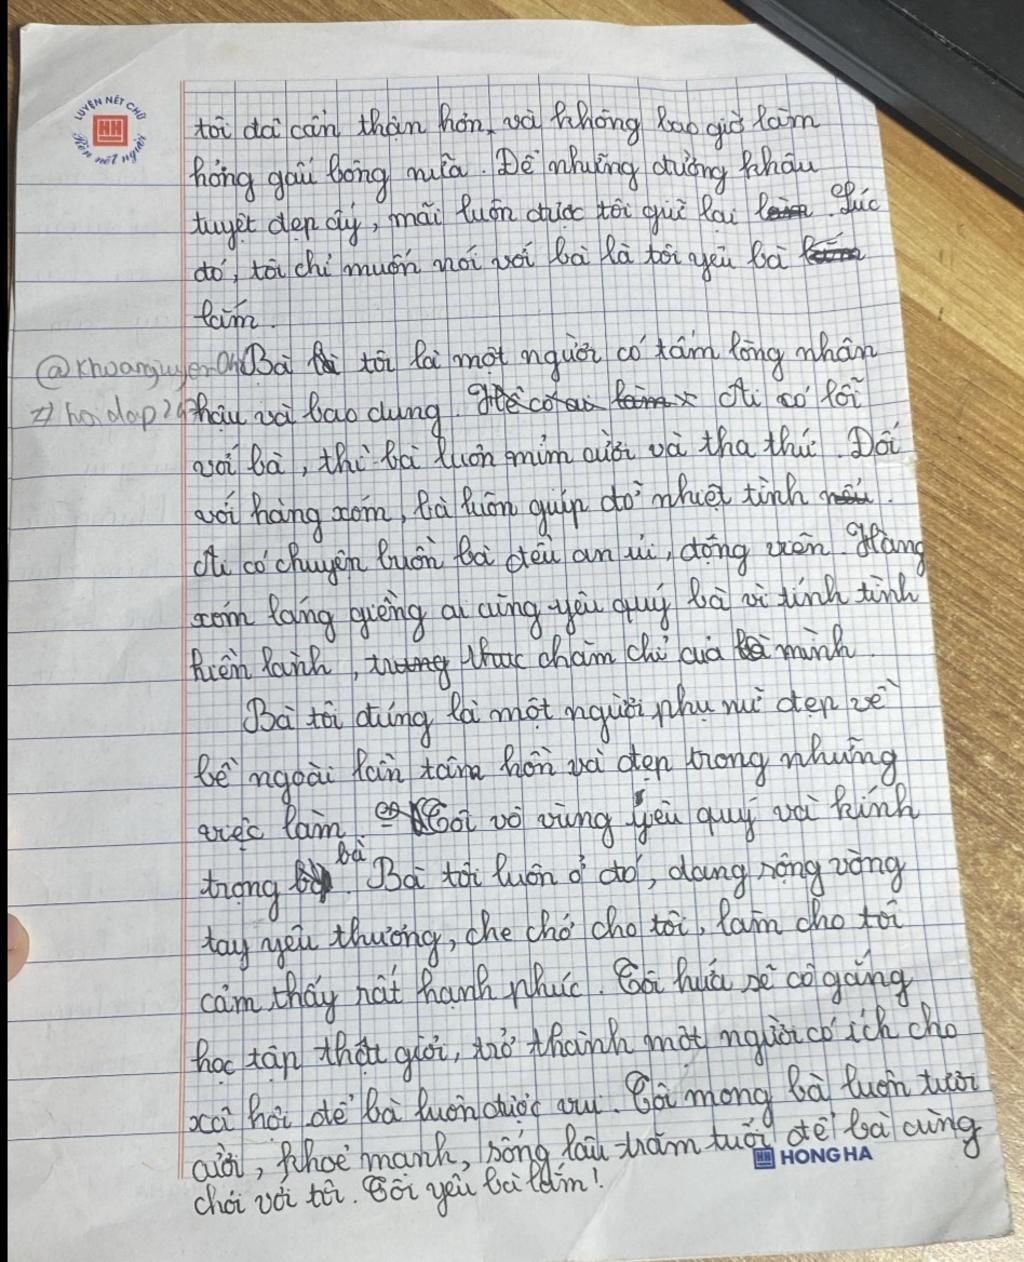 LUYỆN NÉT CHỮ
Rèn nết người
tôi đã cẩn thận hơn, và không bao giờ làm
hỏng gấu bông nữa. Để những đường khâu
tuyệt đẹp ấy, mãi luôn được tôi giữ lại. Lúc
đó, tôi chỉ muốn nói với bà là tôi yêu bà
lắm.
Bà tôi là một người có tấm lòng nhân
hậu và bao dung. Ai có lỗi
với bà, thì bà luôn mỉm cười và tha thứ. Đối
với hàng xóm, bà luôn giúp đỡ nhiệt tình.
Ai có chuyện buồn bà đều an ủi, động viên. Hàng
xóm láng giềng ai cũng yêu quý bà vì tính tình
hiền lành, chăm chỉ của mình.
Bà tôi đúng là một người phụ nữ đẹp về
bề ngoài lẫn tâm hồn và đẹp trong những
việc làm. Tôi vô vùng yêu quý và kính
trọng bà. Bà tôi luôn ở đó, dang rộng vòng
tay yêu thương, che chở cho tôi, làm cho tôi
cảm thấy rất hạnh phúc. Tôi hứa sẽ cố gắng
học tập thật giỏi, trở thành một người có ích cho
xã hội để bà luôn được vui. Tôi mong bà luôn tươi
cười, khoẻ mạnh, sống lâu trăm tuổi để bà cùng
chơi với tôi. Tôi yêu bà lắm!
HONG HA